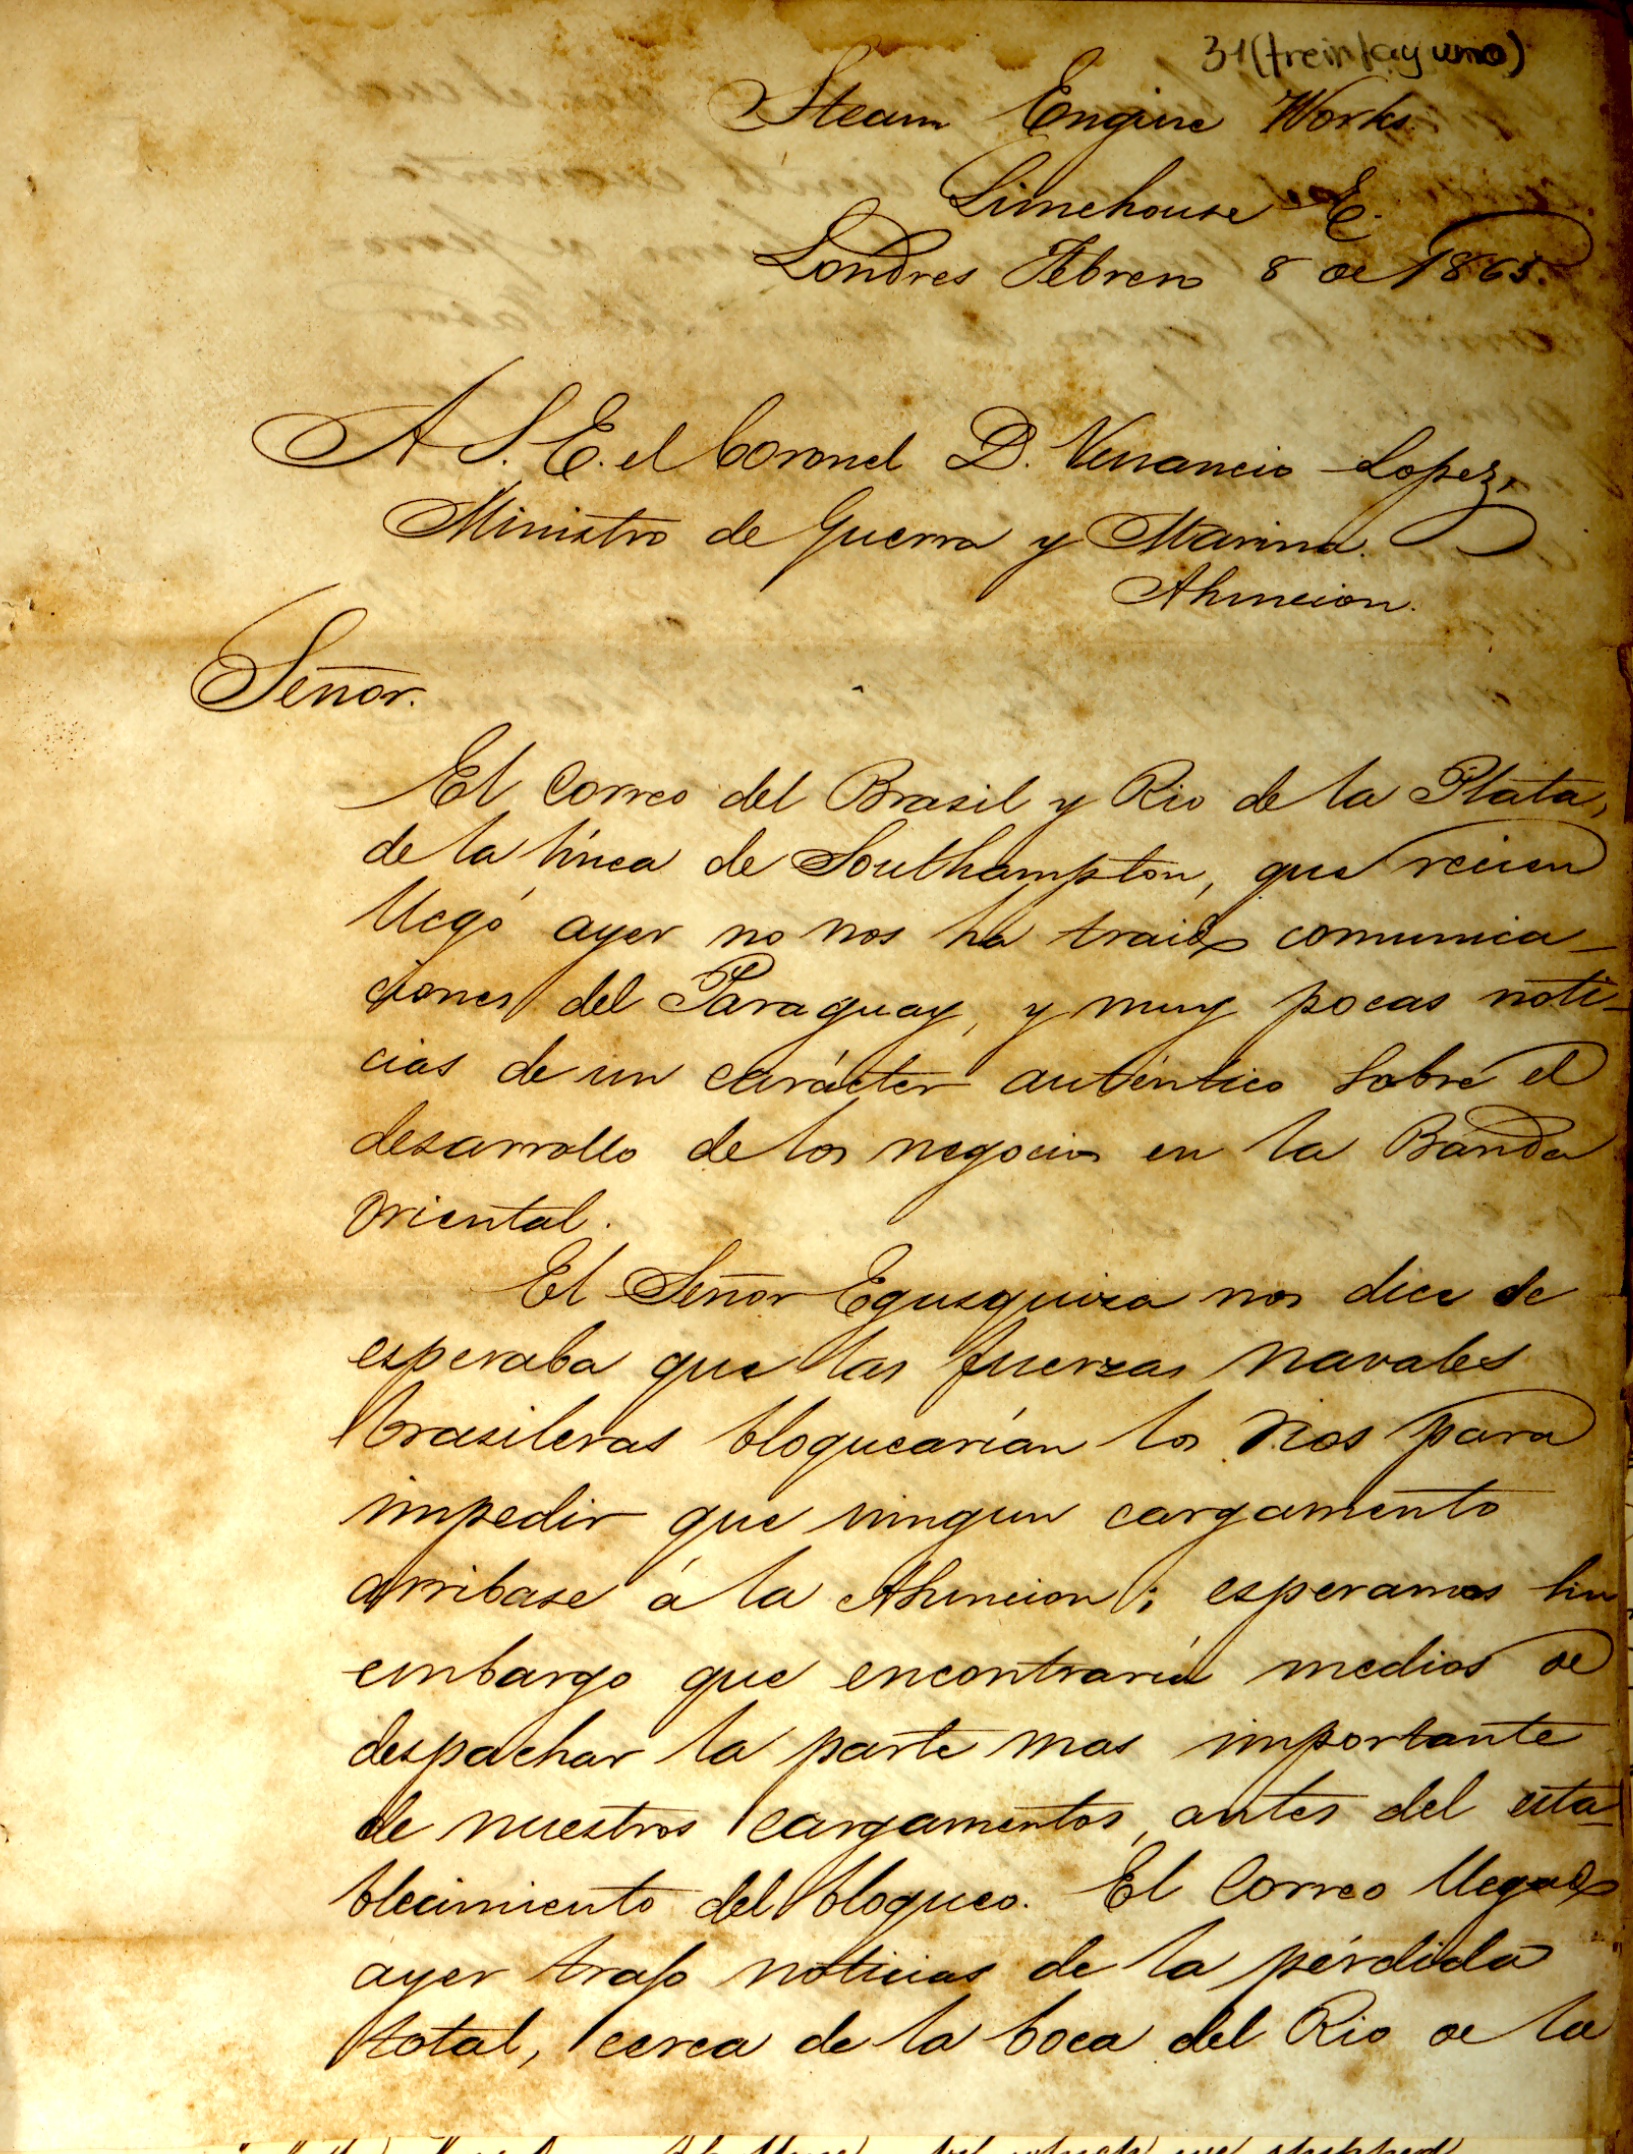 31 (treinta y uno)
Steam Engine Works
Limehouse E.
Londres Febrero 8 de 1865.
A S. E. el Coronel D. Venancio Lopez,
Ministro de Guerra y Marina.
Asuncion.
Señor.
El Correo del Brasil y Rio de la Plata,
de la línea de Southampton, que recien
llegó ayer no nos ha traido comunica-
ciones del Paraguay, y muy pocas noti-
cias de un carácter auténtico sobre el
desarrollo de los negocios en la Banda
Oriental.
El Señor Egusquiza nos dice se
esperaba que las fuerzas navales
brasileras bloquearían los Rios para
impedir que ningun cargamento
arribase á la Asuncion; esperamos sin
embargo que encontraría medios de
despachar la parte mas importante
de nuestros cargamentos, antes del esta-
blecimiento del bloqueo. El Correo llegado
ayer trajo noticias de la pérdida
total, cerca de la boca del Rio de la